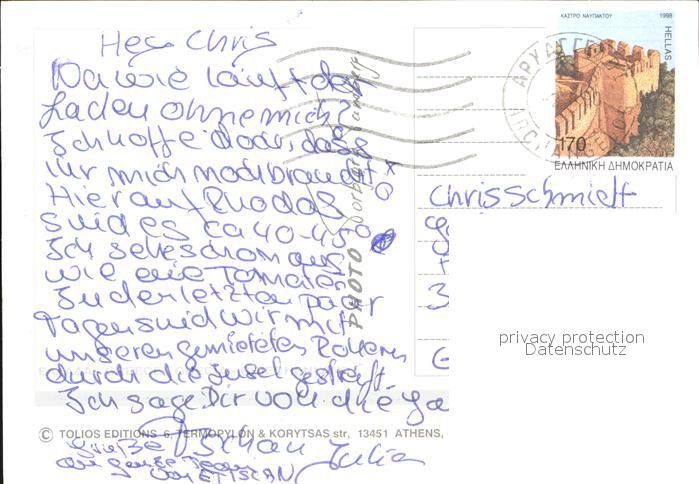 Hey Chris
Na wie läuft der
Laden ohne mich?
Ich hoffe doch, dass
ihr mich noch braucht
Hier auf Rhodos
sind es ca 40-45°
Ich sehe schon aus
wie eine Tomate
In den letzten paar
Tagen sind wir mit
unseren gemieteten Rollern
durch die Insel gestreift
Ich sage Dir voll die
Grüße
Julia
an ganze Team
von
Chris Schmidt
ΚΑΣΤΡΟ ΝΑΥΠΑΚΤΟΥ 1998
HELLAS
170
ΕΛΛΗΝΙΚΗ ΔΗΜΟΚΡΑΤΙΑ
PHOTO
privacy protection
Datenschutz
© TOLIOS EDITIONS 6, TERMOPYLON & KORYTSAS str, 13451 ATHENS,